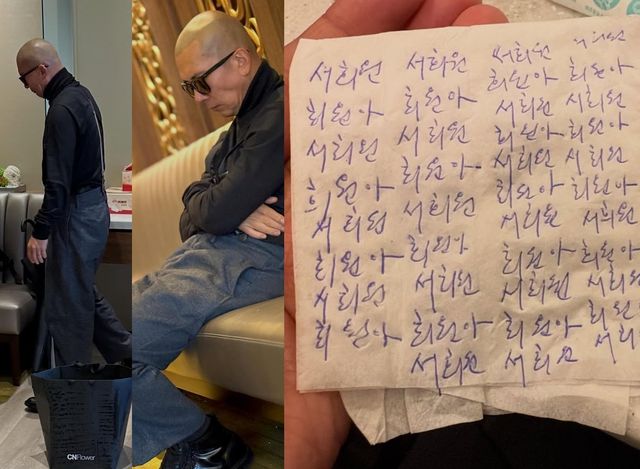 서희원 서희원 서희원 서희원
희원아 희원아 희원아 희원아
서희원 서희원 서희원 서희원
희원아 희원아 희원아 희원아
서희원 서희원 서희원 서희원
희원아 희원아 희원아 희원아
서희원 서희원 서희원 서희원
희원아 희원아 희원아 희원아
서희원 서희원 서희원
희원아 희원아
서희원
CNFlower